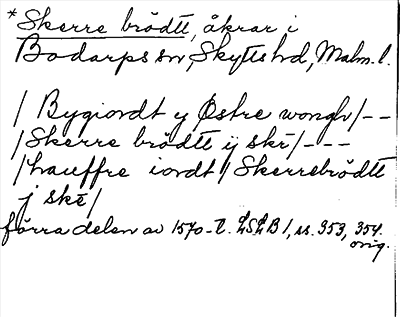 *Skerre brödtt, åkrar i
Bodarps sn, Skytts hd, Malm. l.
/ Bygiordt y Østre wongh/ - -
/Skerre brödtt ij skr/ - - -
/hauffre iordt/Skerrebrödtt
j skr/
förra delen av 1570-t. LSLB 1, ss. 353, 354.
orig.